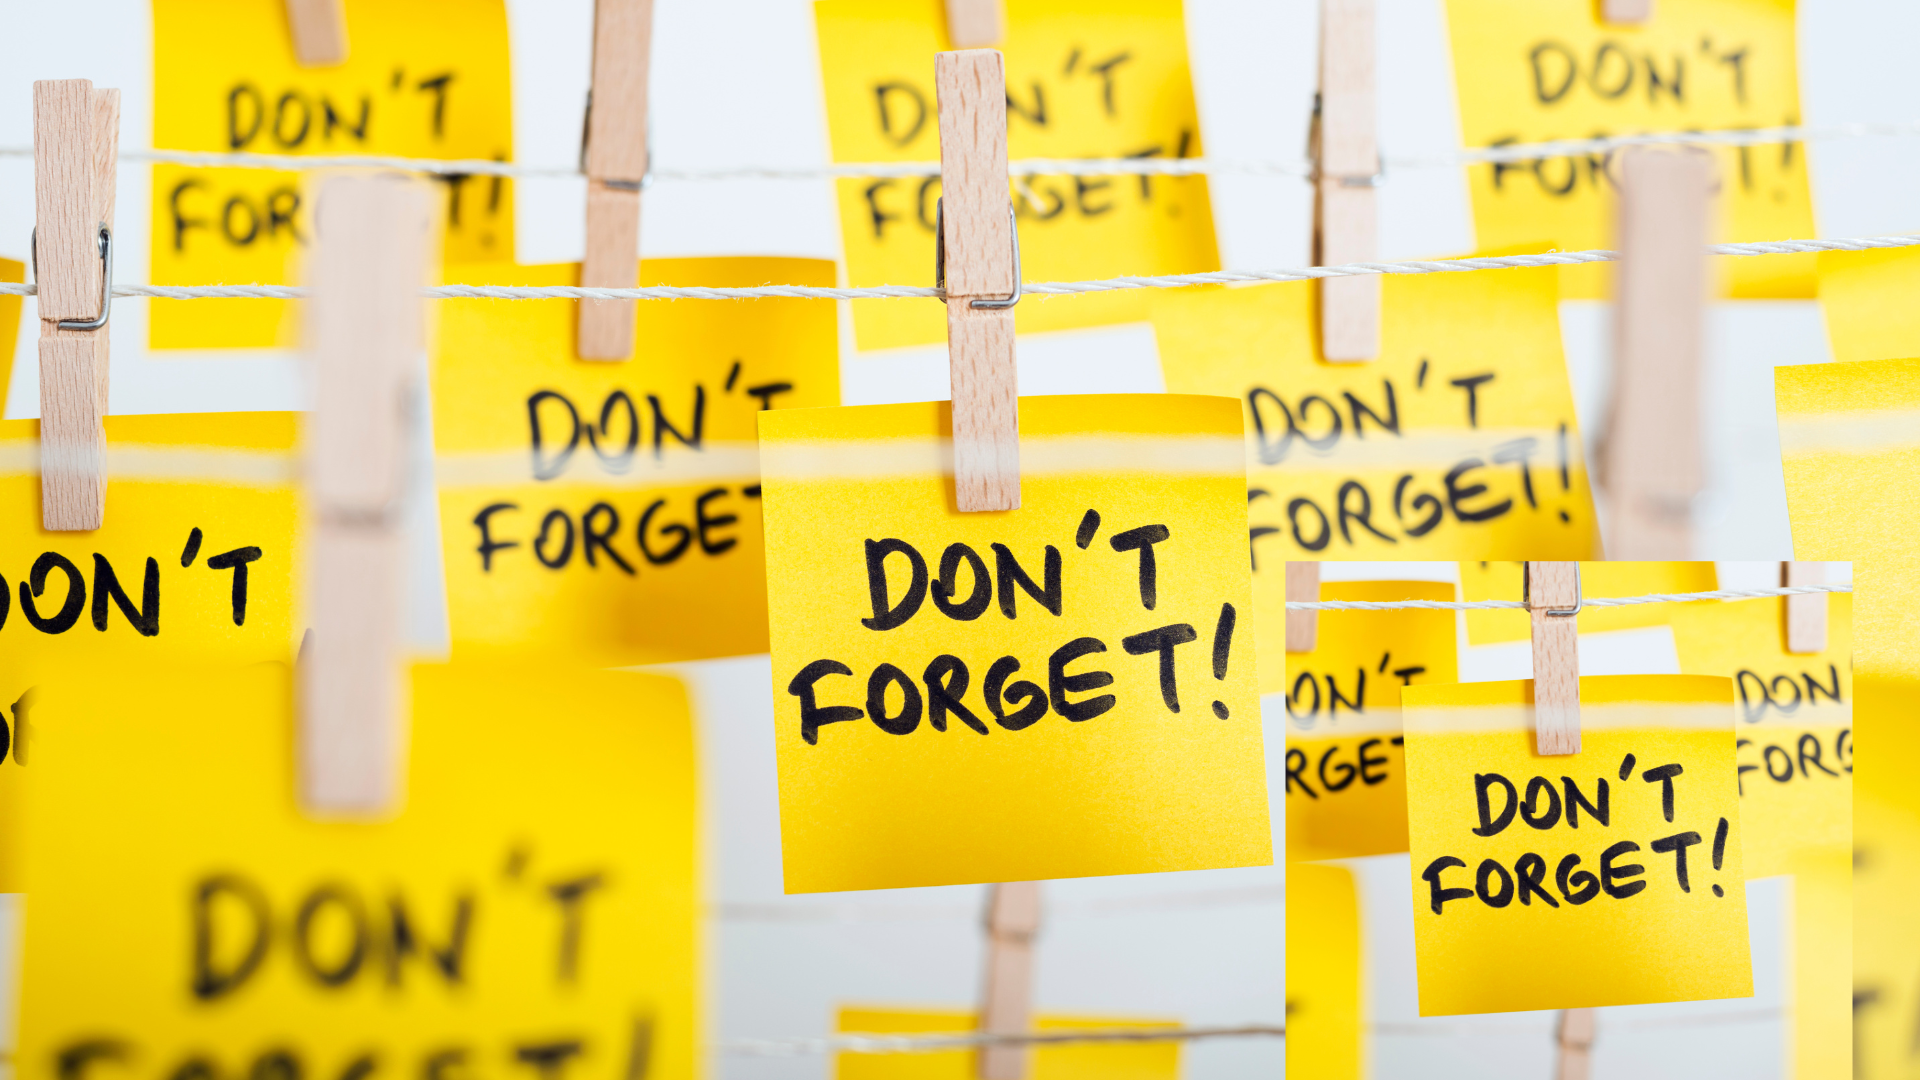 DON'T
FORGET!
DON'T
FORGET!
DON'T
FORGET!
DON'T
FORGET
DON'T
FORGET!
DON'T
FORGET!
DON'T
DON'T
FORGET!
ON'T
RGET
DON'T
FORGET!
DON
FORG